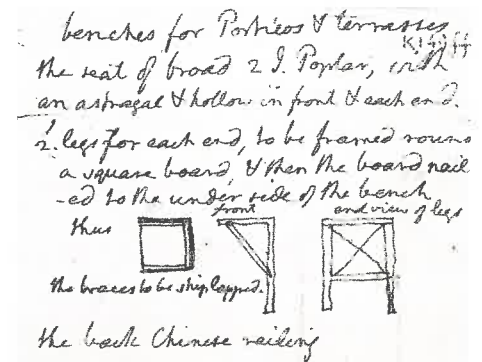 benches for Porticos & terrasses
K149ff
the seat of broad 2 I. Poplar, with
an astragal & hollow in front & each end.
2. legs for each end, to be framed round
a square board, & then the board nail
-ed to the under side of the bench
thus
front
end view of legs
the braces to be ship lapped.
the back Chinese railing